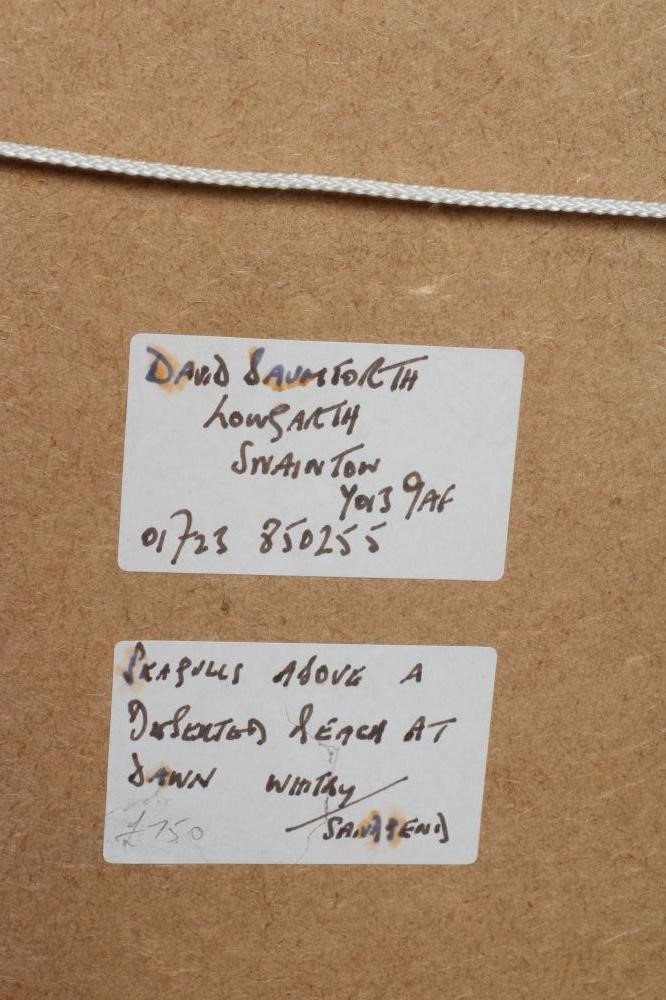 DAVID BAUMFORTH
LOWGARTH
SNAINTON
YO13 9AF
01723 850255
SEAGULLS ABOVE A
DESERTED BEACH AT
DAWN WHITBY/
SANDSEND
£750